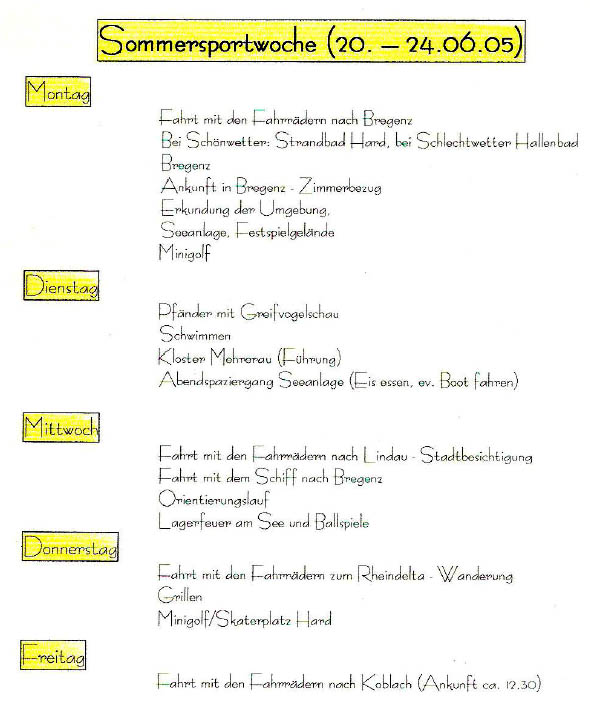 Sommersportwoche (20. – 24.06.05)
Montag
Fahrt mit den Fahrrädern nach Bregenz
Bei Schönwetter: Strandbad Hard, bei Schlechtwetter Hallenbad
Bregenz
Ankunft in Bregenz - Zimmerbezug
Erkundung der Umgebung,
Seeanlage, Festspielgelände
Minigolf
Dienstag
Pfänder mit Greifvogelschau
Schwimmen
Kloster Mehrerau (Führung)
Abendspaziergang Seeanlage (Eis essen, ev. Boot fahren)
Mittwoch
Fahrt mit den Fahrrädern nach Lindau - Stadtbesichtigung
Fahrt mit dem Schiff nach Bregenz
Orientierungslauf
Lagerfeuer am See und Ballspiele
Donnerstag
Fahrt mit den Fahrrädern zum Rheindelta - Wanderung
Grillen
Minigolf/Skaterplatz Hard
Freitag
Fahrt mit den Fahrrädern nach Koblach (Ankunft ca. 12.30)